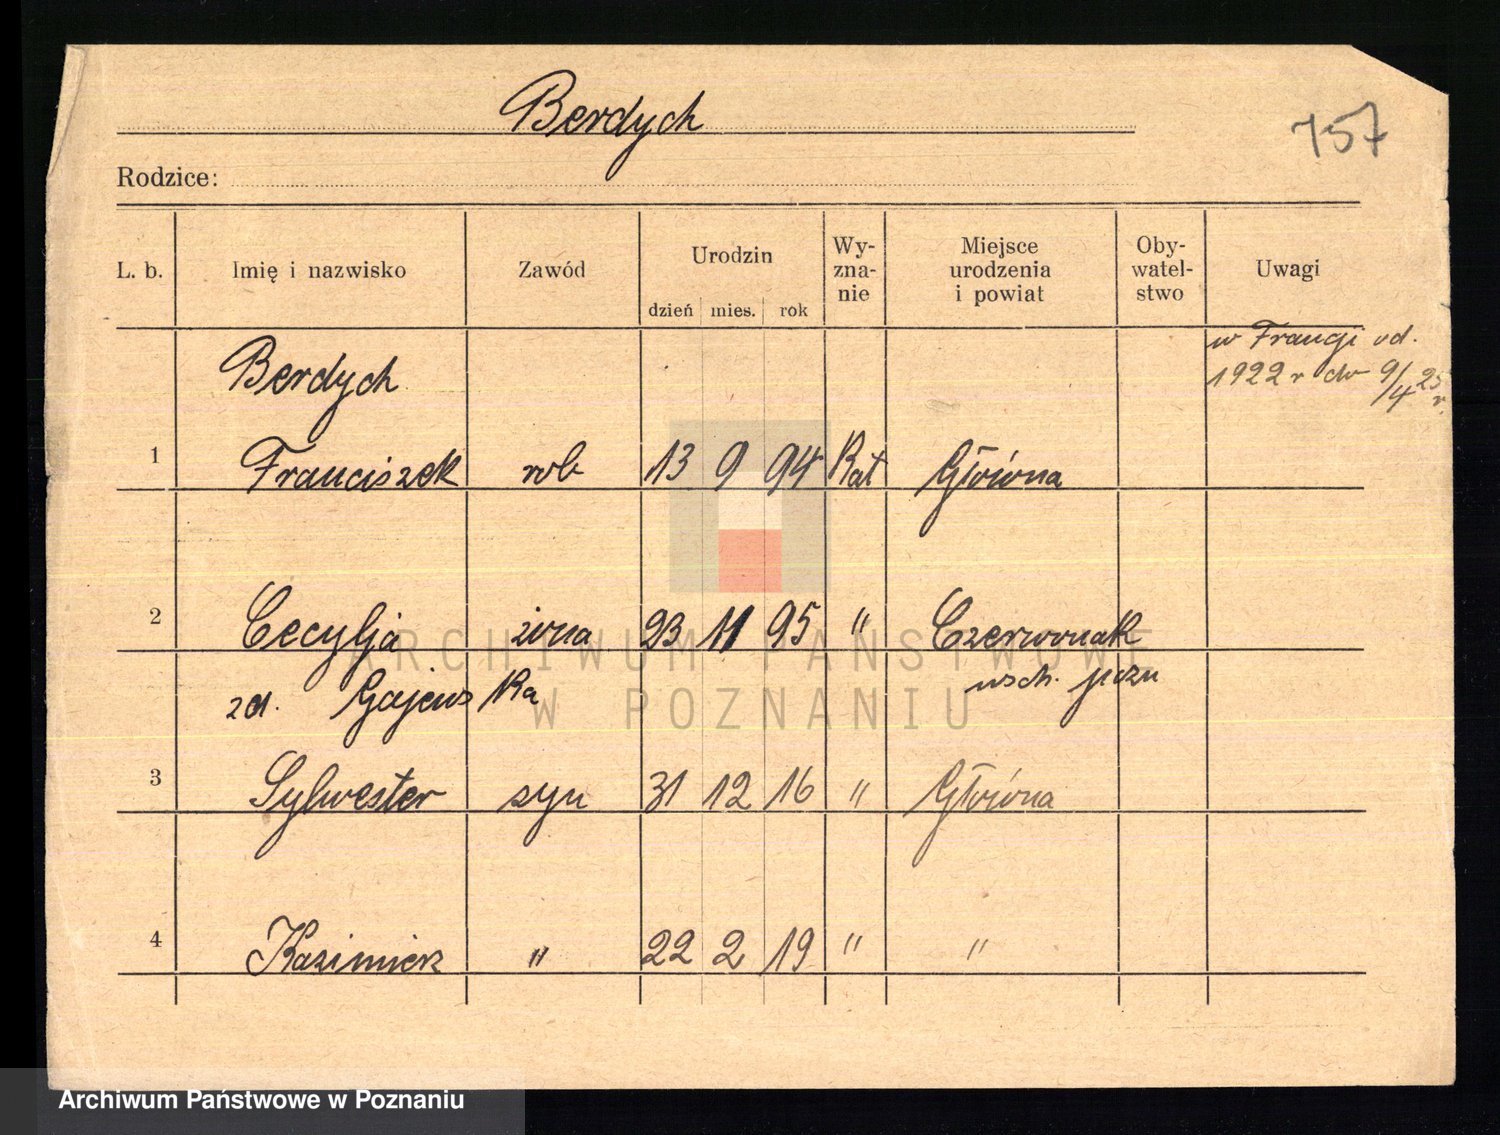 Berdych
757
Rodzice:
L. b. Imię i nazwisko Zawód Urodzin Wy-zna-nie Miejsce urodzenia i powiat Oby-watel-stwo Uwagi
dzień mies. rok
w Francji od.
1922 r do 9/4 25 r.
Berdych
1 Franciszek rob 13 9 94 Kat Główna
2 Cecylja żona 23 11 95 " Czerwonak
zd. Gajewska wsch. pozn
3 Sylwester syn 31 12 16 " Główna
4 Kazimierz " 22 2 19 " "
ARCHIWUM PAŃSTWOWE
W POZNANIU
Archiwum Państwowe w Poznaniu